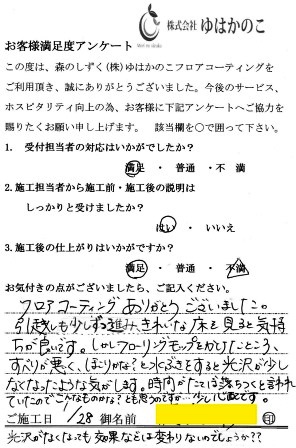 株式会社 ゆはかのこ
お客様満足度アンケート
この度は、森のしずく(株)ゆはかのこフロアコーティングを
ご利用頂き、誠にありがとうございました。今後のサービス、
ホスピタリティ向上の為、お客様に下記アンケートへご協力を
賜りたくお願い申し上げます。 該当欄を○で囲って下さい。
1. 受付担当者の対応はいかがでしたか?
満足 ・ 普通 ・不 満
2. 施工担当者から施工前・施工後の説明は
しっかりと受けましたか?
はい ・ いいえ
3. 施工後の仕上がりはいかがですか?
満足 ・ 普通 ・ 不満
お気付きの点がございましたら、ご記入ください。
フロアコーティングありがとうございました。
引越しも少しずつ進み、きれいな床を見ると気持
ちが良いです。しかしフローリングモップをかけたところ、
すべりが悪く、ほこりかな?と水ぶきをすると光沢が少し
なくなったような気がします。時間がたてば落ちつくと言われ
ていたのでこんなものかな?とも思うのですが、少し心配です。
ご施工日 1/28 御名前 印
光沢がなくなっても効果などは変わりないのでしょうか?